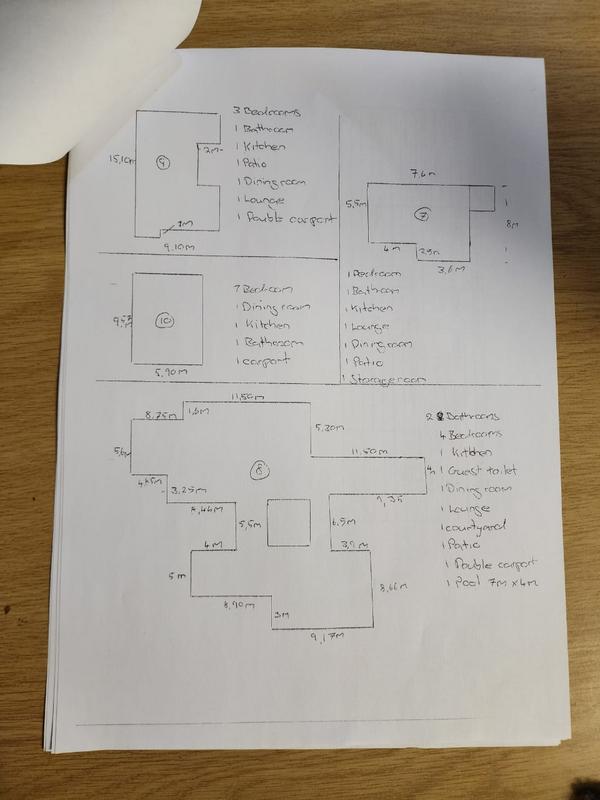 3 Bedrooms
1 Bathroom
1 Kitchen
1 Patio
1 Dining room
1 Lounge
1 Double carport
15,10m
9
2m
1M
9.10M
7.6m
5,5m
7
8m
4m
3.6M
1 Bedroom
1 Bathroom
1 Kitchen
1 Lounge
1 Dining room
1 Patio
1 Storage room
10
5,90M
Bedroom
1 Dining room
1 Kitchen
1 Bathroom
1 carport
11,50m
8,75M
1,6M
5,30m
11,50M
5,6m
8
4m
3,25M
5,5m
6.5m
4M
5M
8,66m
3m
9,17M
2 Bathrooms
4 Bedrooms
1 Kitchen
1 Guest toilet
1 Dining room
1 Lounge
1 courtyard
1 Patio
1 Double carport
1 Pool 7M x 4M